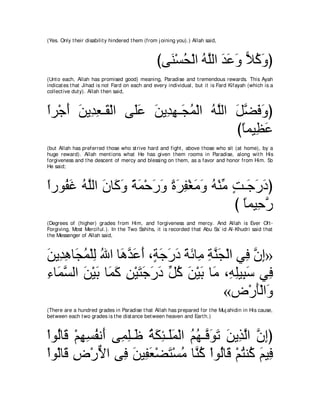 (Yes. Only their disability hindered them (from joining you).) Allah said,
(وَكُلاًّ وَعَدَ اللَّهُ الْحُسْنَى)
(Unto each, Allah has promised good) meaning, Paradise and tremendous rewards. This Ayah
indicates that Jihad is not Fard on each and every individual, but it is Fard Kifayah (which is a
collective duty). Allah then said,
(وَفَضَّلَ اللَّهُ الْمُجَـهِدِينَ عَلَى الْقَـعِدِينَ أَجْراً
عَظِيماً)
(but Allah has preferred those who strive hard and fight, above those who sit (at home), by a
huge reward). Allah mentions what He has given them rooms in Paradise, along with His
forgiveness and the descent of mercy and blessing on them, as a favor and honor from Him. So
He said;
(دَرَجَـتٍ مِّنْهُ وَمَغْفِرَةً وَرَحْمَةً وَكَانَ اللَّهُ غَفُوراً
رَّحِيماً )
(Degrees of (higher) grades from Him, and forgiveness and mercy. And Allah is Ever Oft-
Forgiving, Most Merciful.). In the Two Sahihs, it is recorded that Abu Sa`id Al-Khudri said that
the Messenger of Allah said,
«إِنَّ فِي الْجَنَّةِ مِائَةَ دَرَجَةٍ، أَعَدَّهَا اللهُ لِلْمُجَاهِدِينَ
فِي سَبِيلِهِ، مَا بَيْنَ كُلِّ دَرَجَتَيْنِ كَمَا بَيْنَ السَّمَاءِ
وَالْأَرْض»
(There are a hundred grades in Paradise that Allah has prepared for the Mujahidin in His cause,
between each two grades is the distance between heaven and Earth.)
(إِنَّ الَّذِينَ تَوَفَّـهُمُ الْمَلَـئِكَةُ ظَـلِمِى أَنفُسِهِمْ قَالُواْ
فِيمَ كُنتُمْ قَالُواْ كُنَّا مُسْتَضْعَفِينَ فِى الاٌّرْضِ قَالْواْ